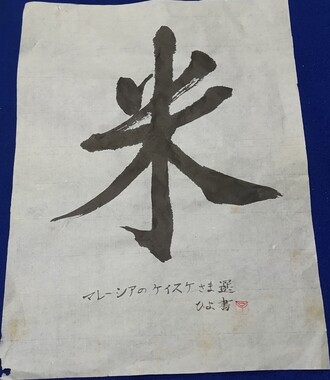 米
マレーシアのケイスケさま選
ひよ書